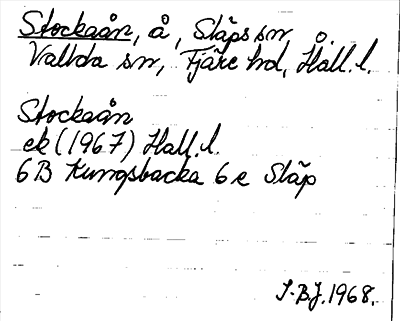 Stockaån, å, Släps sn,
Vallda sn, Fjäre hd, Hall.l.
Stockaån
ek (1967) Hall.l.
6B Kungsbacka 6e Släp
S.B.J. 1968.